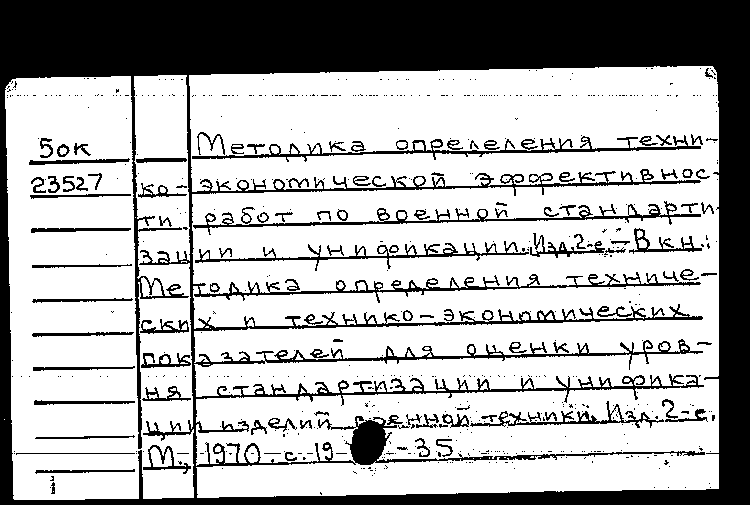 5ок Методика определения техни-
23527 ко-экономической эффективнос-
ти работ по военной стандарти
зации и унификации. Изд. 2-е. - В кн.:
Методика определения техниче-
ских и технико-экономических
показателей для оценки уров-
ня стандартизации и унифика-
ции изделий военной техники. Изд. 2-е.
М., 1970. с. 19 -35.
i